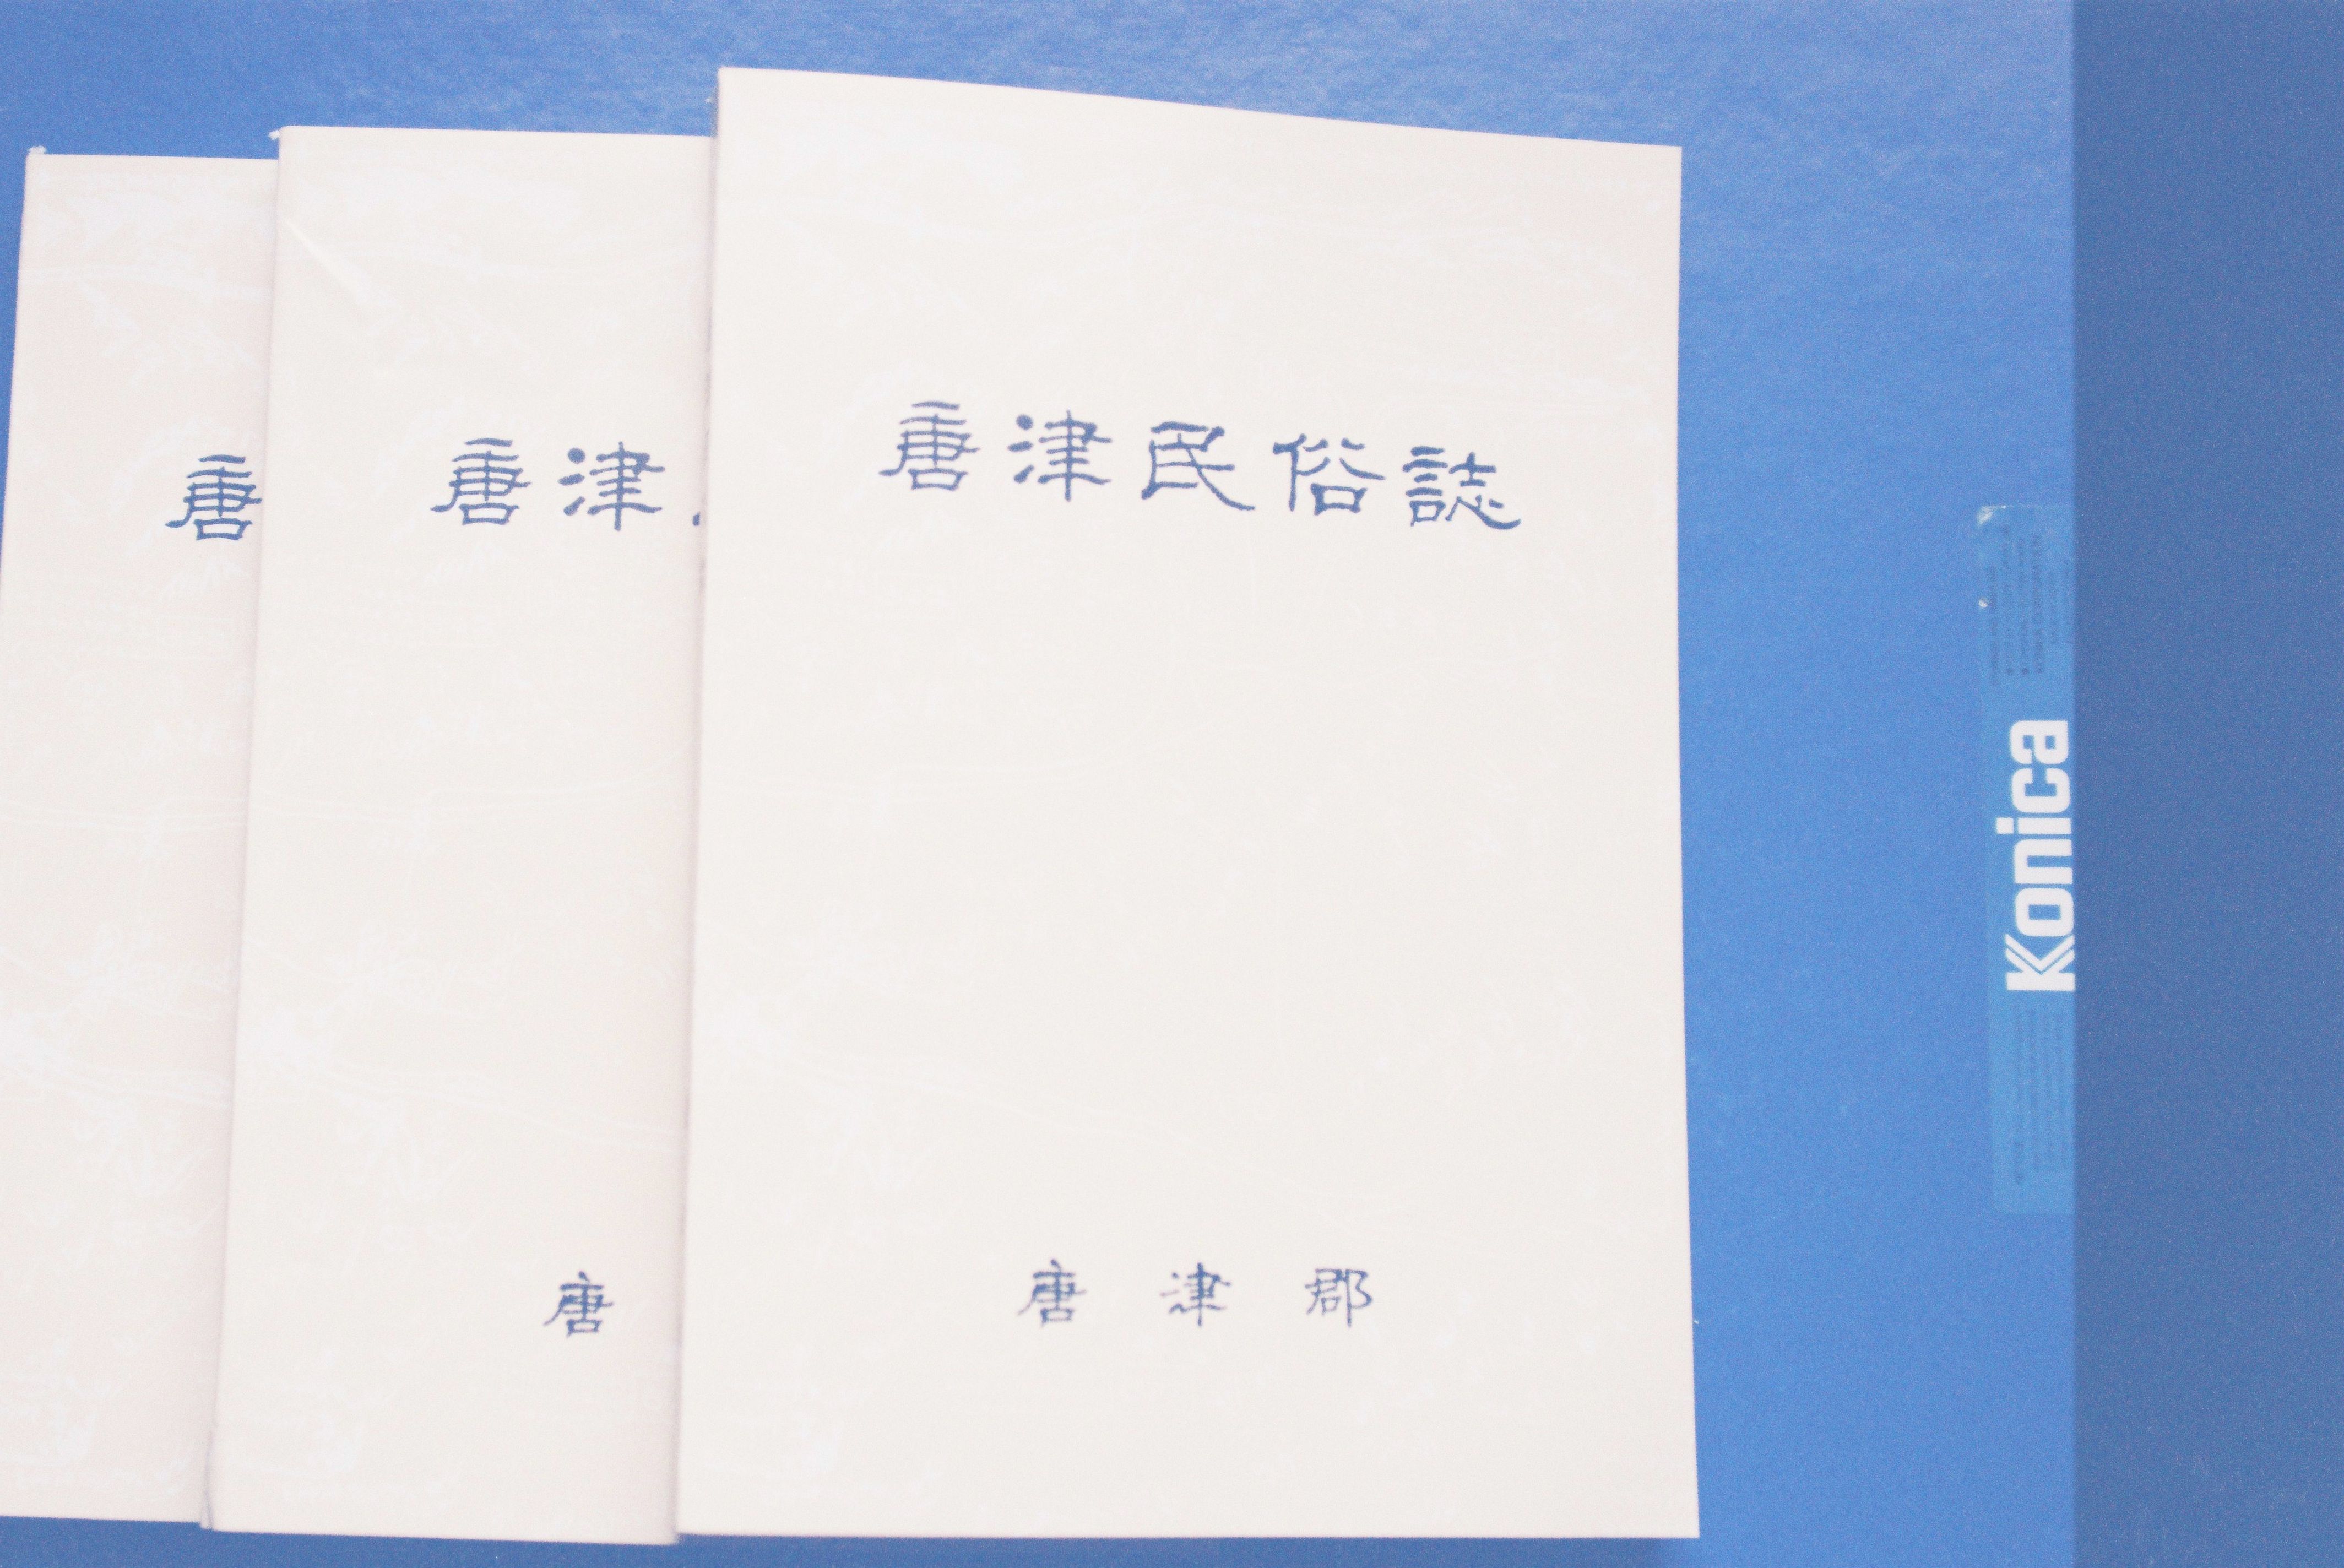 唐
唐津
唐津民俗誌
唐
唐津郡
Konica